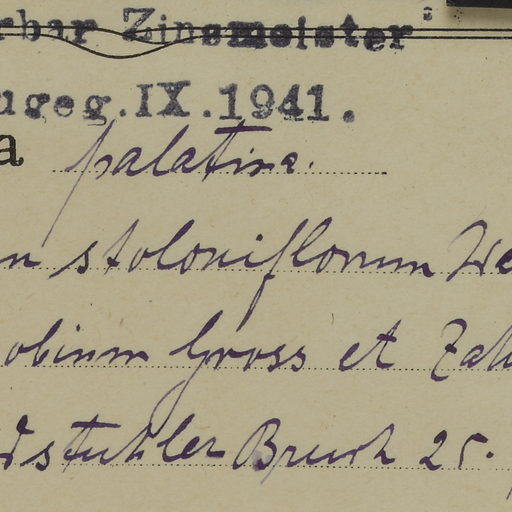 rbar Zinsmeister
ugeg.IX.1941.
a palatina.
n stoloniflorum We
obium Gross et Zah
dstuhler Bruch 25.